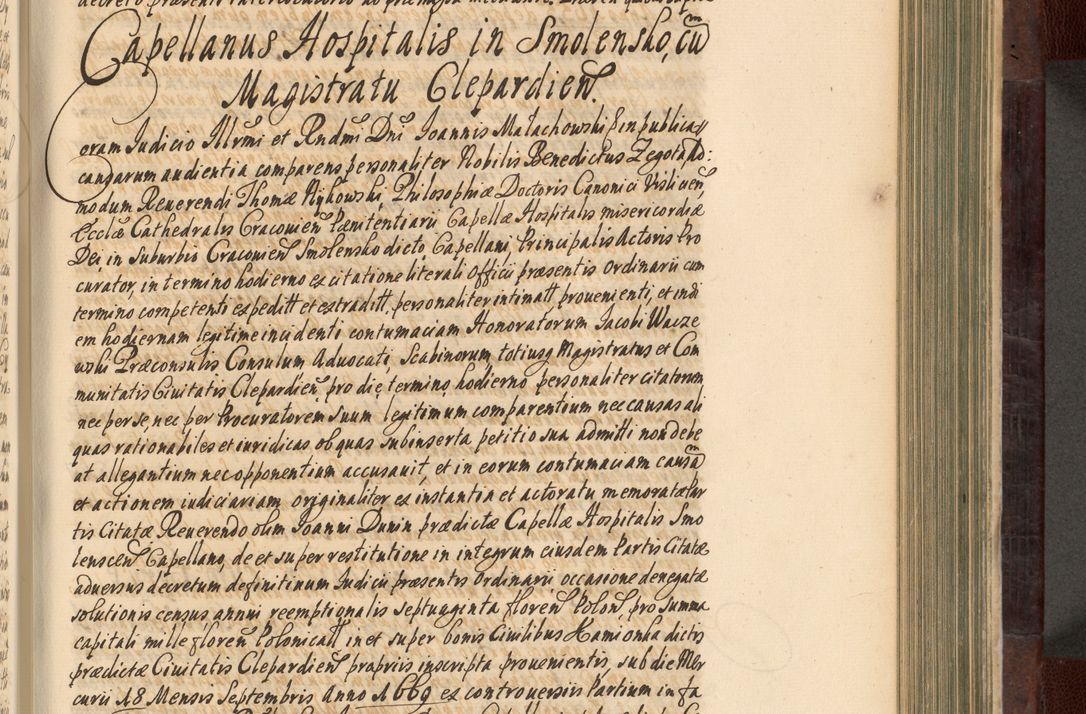 Capellanus Hospitalis in Smolensko, cũ
Magistratu Clepardień.
Coram Judicio Illrmi et Rndmi Dni Ioannis Małachowski Epi in publica
eandarum audientia comparens personaliter Nobilis Benedictus Zegota Ad:
modum Reuerendi Thomæ Rijkowski, Philosophiæ Doctoris Canonici Visliceń
Ecclæ Cathedralis Cracouień Pænitentiarii Capellæ Hospitalis misericordiæ
Dei, in Suburbio Cracouień Smolensko dicto, Capellani, Principalis Actoris Pro
curator, in termino hodierno ex citatione literali Officii præsentis Ordinarii cum
termino competenti expeditt et extraditt, personaliter intimatt, prouenienti, et in di
em hodiernam legitime incidenti contumaciam Honoratorum Jacobi Wacze
wski Præconsulis, Consulum Aduocati, Scabinorum totiusq Magistratus et Com
munitatis Ciuitatis Clepardień, pro die, termino, hodierno personaliter citatorum
nec per se, nec per Procuratorem suum legitimum comparentium nec causas ali
quas rationabiles et iuridicas ob quas subinserta petitio sua admitti non debe
at allegantium nec opponentium accusauit, et in eorum contumaciam causã
et actionem iudiciariam originaliter ex instantia et actoratu memoratæ Par
tis Citatæ Reuerendo olim Joanni Dunin prædictæ Capellæ Hospitalis Smo
lensceń Capellano, de et super restitutione in integrum eiusdem Partis Citatæ
aduersus decretum definitiuum Iudicii præsentis Ordinarii occasione denegatæ
solutionis census annui reemptionalis septuaginta floreń Poloń, pro summa
capitali mille floreń Polonicall in et super bonis Ciuilibus Kamionka dictis
prædictæ Ciuitatis Clepardień proprijs inscripta prouenientis, sub die Mer
curii 18 Mensis Septembris Anno 1669 ex controuersiis Partium in fa